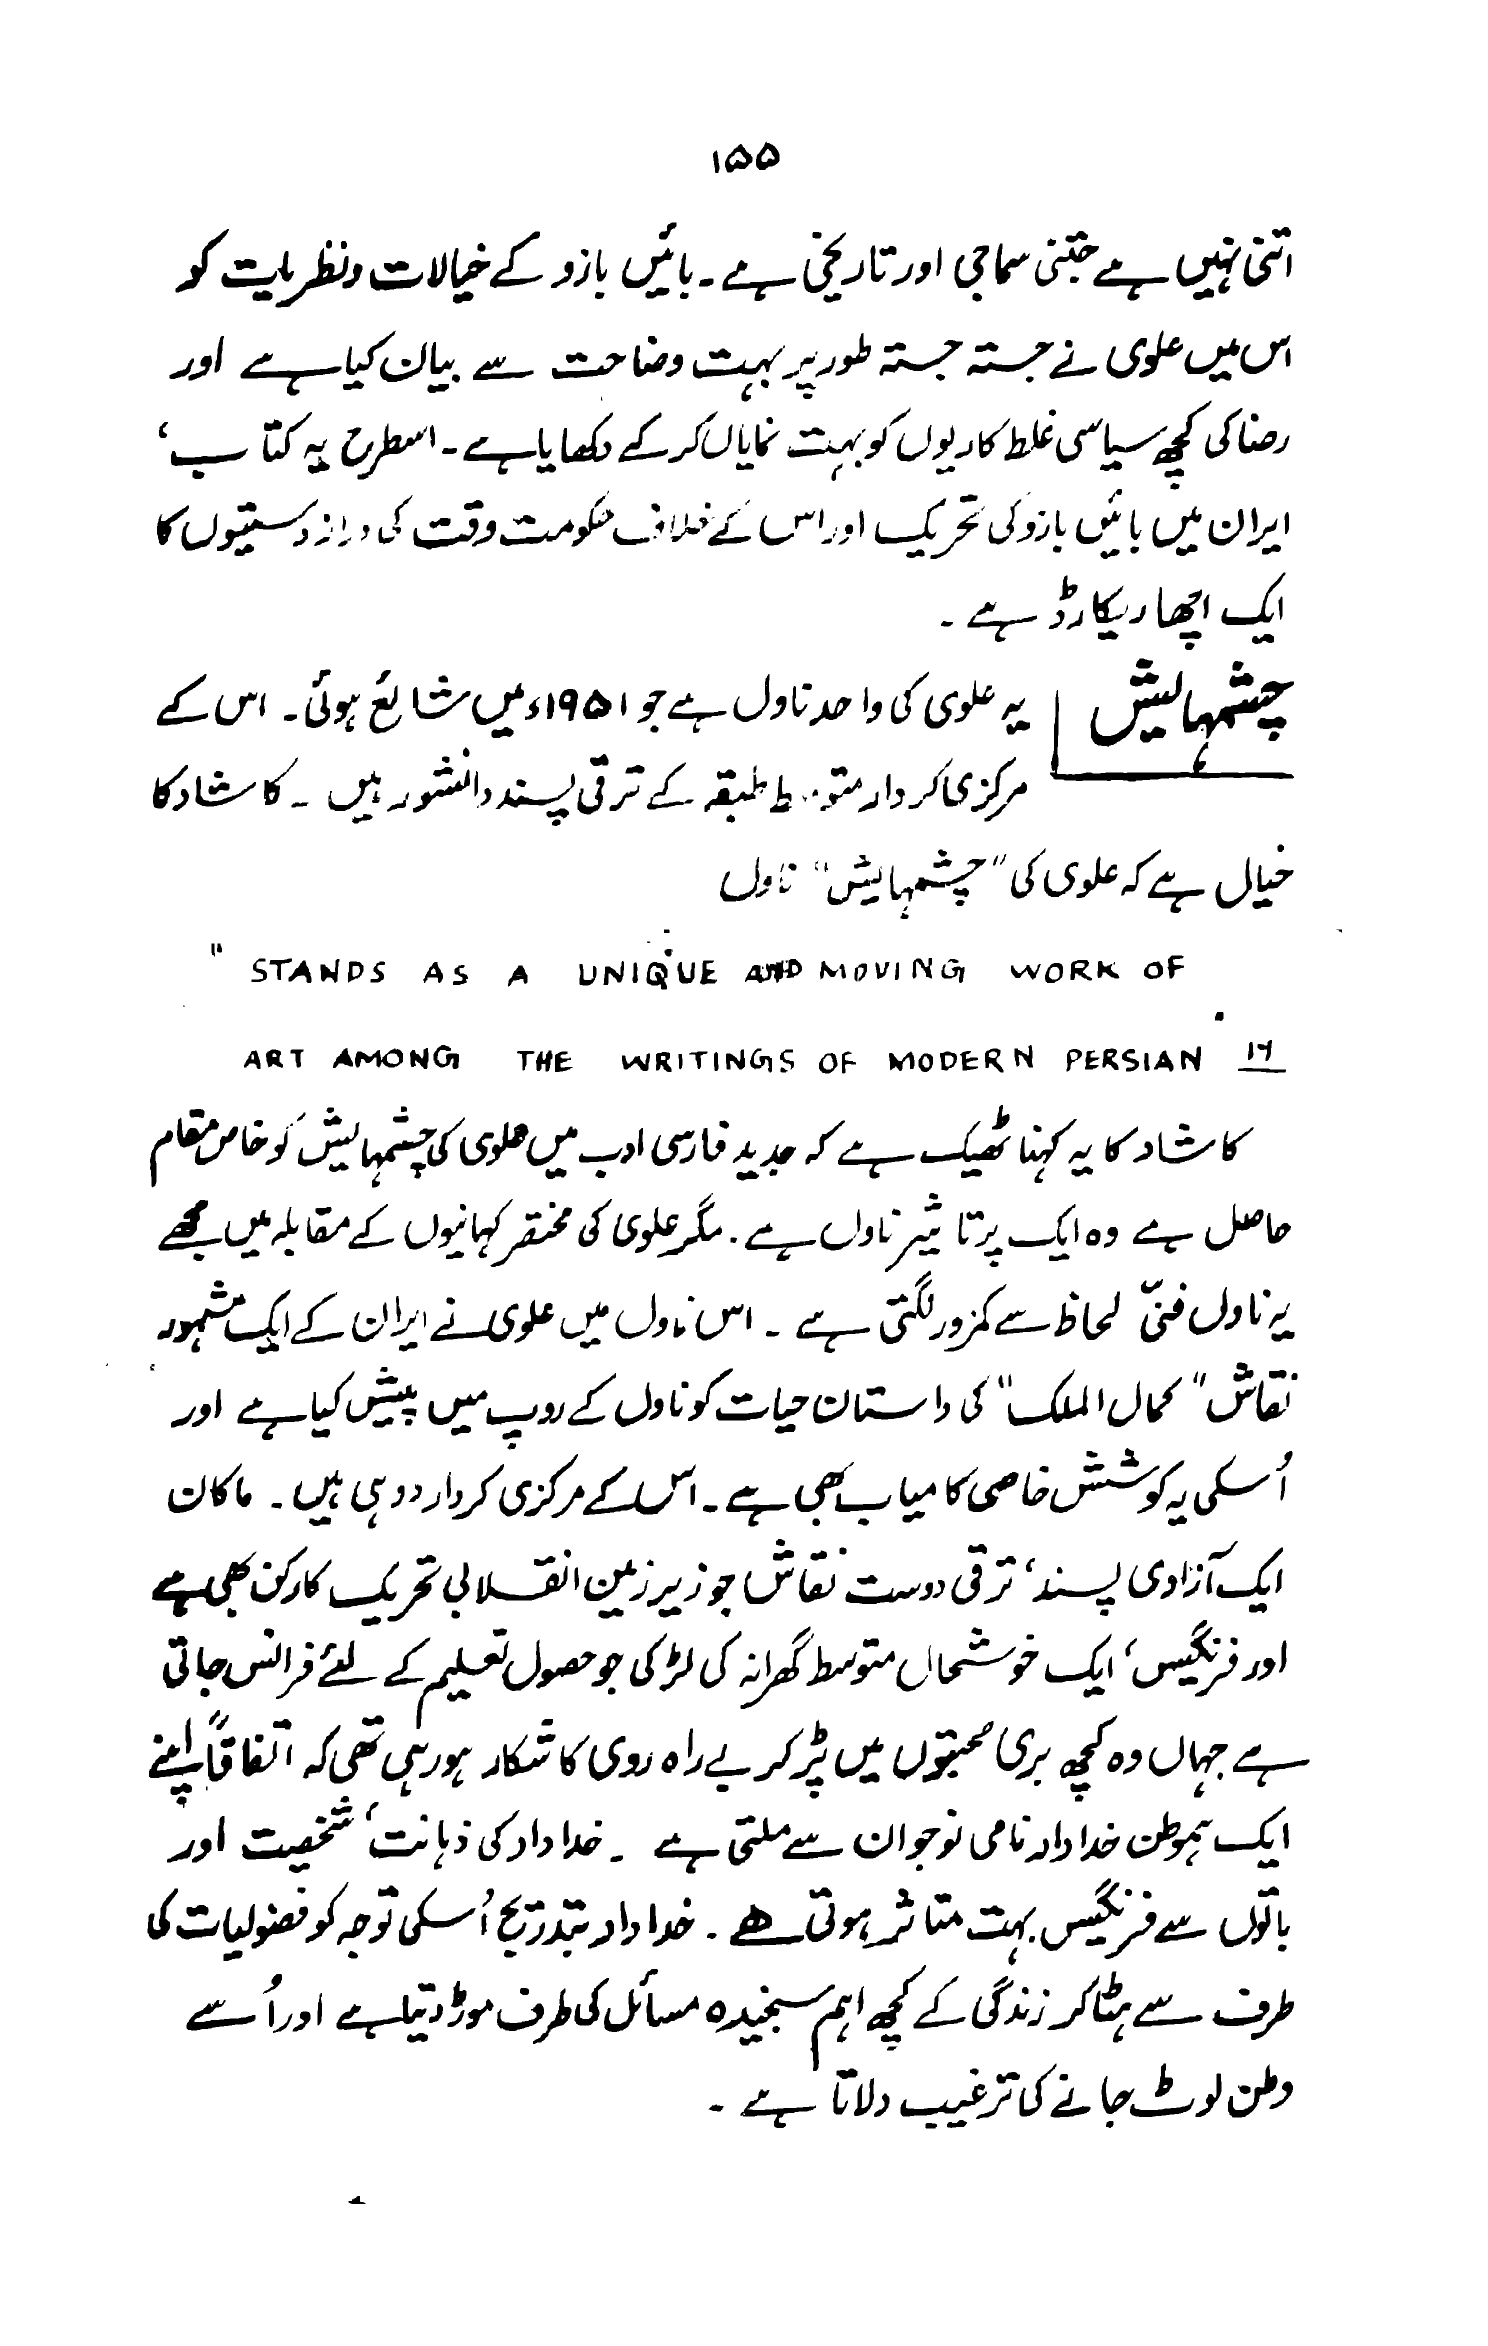 ۱۵۵
اتنی نہیں ہے جتنی سماجی اور تاریخی ہے۔ بائیں بازو کے خیالات ونظریات کو
اس میں علوی نے جستہ جستہ طور پر بہت وضاحت سے بیان کیا ہے اور
رضا کی کچھ سیاسی غلط کاریوں کو بہت نمایاں کرکے دکھایا ہے۔ اسطرح یہ کتاب ‘
ایران میں بائیں بازو کی تحریک اور اس کے خلاف حکومت وقت کی دراز دستیوں کا
ایک اچھا ریکارڈ ہے ۔
چشمہایش
یہ علوی کی واحد ناول ہے جو ۱۹۵۱ء میں شائع ہوئی۔ اس کے
مرکزی کردار متوسط طبقہ کے ترقی پسند دانشور ہیں ۔ کاشاد کا
خیال ہے کہ علوی کی "چشمہایش" ناول
" STANDS AS A UNIQUE AND MOVING WORK OF
ART AMONG THE WRITINGS OF MODERN PERSIAN ۱۶
کاشاد کا یہ کہنا ٹھیک ہے کہ جدید فارسی ادب میں علوی کی چشمہایش کو خاص مقام
حاصل ہے وہ ایک پرتاثیر ناول ہے ۔ مگر علوی کی مختصر کہانیوں کے مقابلہ میں مجھے
یہ ناول فنّی لحاظ سے کمزور لگتی ہے ۔ اس ناول میں علوی نے ایران کے ایک مشہور
نقاش " کمال الملک" کی داستان حیات کو ناول کے روپ میں پیش کیا ہے اور
اُسکی یہ کوشش خاصی کامیاب بھی ہے ۔ اس کے مرکزی کردار دو ہی ہیں ۔ ماکان
ایک آزادی پسند‘ ترقی دوست نقاش جو زیر زمین انقلابی تحریک کا رکن بھی ہے
اور فرنگیس‘ ایک خوشحال متوسط گھرانہ کی لڑکی جو حصول تعلیم کے لئے فرانس جاتی
ہے جہاں وہ کچھ بری صحبتوں میں پڑ کر بے راہ روی کا شکار ہورہی تھی کہ اتفاقاً اپنے
ایک ہموطن خداداد نامی نوجوان سے ملتی ہے ۔ خداداد کی ذہانت‘ شخصیت اور
باتوں سے فرنگیس بہت متاثر ہوتی ہے ۔ خداداد بتدریج اُسکی توجہ کو فضولیات کی
طرف سے ہٹا کر زندگی کے کچھ اہم سنجیدہ مسائل کی طرف موڑ دیتا ہے اور اُسے
وطن لوٹ جانے کی ترغیب دلاتا ہے ۔